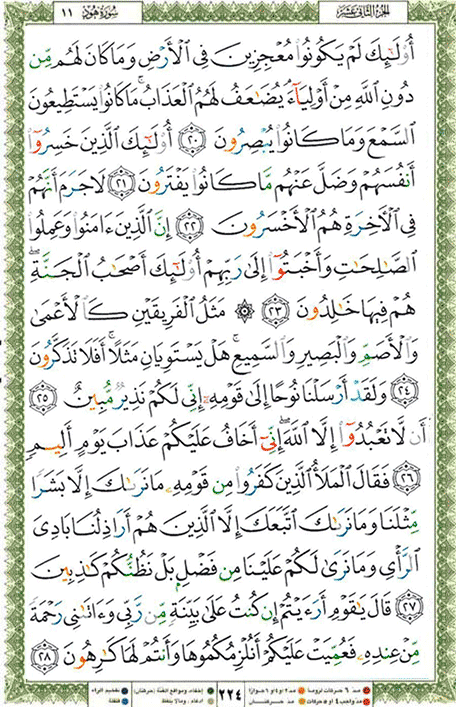 الجزء الثاني عشر
سورة هود ١١
أُوْلَـٰٓئِكَ لَمْ يَكُونُوا۟ مُعْجِزِينَ فِى ٱلْأَرْضِ وَمَا كَانَ لَهُم مِّن
دُونِ ٱللَّهِ مِنْ أَوْلِيَآءَ ۘ يُضَـٰعَفُ لَهُمُ ٱلْعَذَابُ ۚ مَا كَانُوا۟ يَسْتَطِيعُونَ
ٱلسَّمْعَ وَمَا كَانُوا۟ يُبْصِرُونَ ٢٠ أُوْلَـٰٓئِكَ ٱلَّذِينَ خَسِرُوٓا۟
أَنفُسَهُمْ وَضَلَّ عَنْهُم مَّا كَانُوا۟ يَفْتَرُونَ ٢١ لَا جَرَمَ أَنَّهُمْ
فِى ٱلْـَٔاخِرَةِ هُمُ ٱلْأَخْسَرُونَ ٢٢ إِنَّ ٱلَّذِينَ ءَامَنُوا۟ وَعَمِلُوا۟
ٱلصَّـٰلِحَـٰتِ وَأَخْبَتُوٓا۟ إِلَىٰ رَبِّهِمْ أُوْلَـٰٓئِكَ أَصْحَـٰبُ ٱلْجَنَّةِ ۖ
هُمْ فِيهَا خَـٰلِدُونَ ٢٣ ۞ مَثَلُ ٱلْفَرِيقَيْنِ كَٱلْأَعْمَىٰ
وَٱلْأَصَمِّ وَٱلْبَصِيرِ وَٱلسَّمِيعِ ۚ هَلْ يَسْتَوِيَانِ مَثَلًا ۚ أَفَلَا تَذَكَّرُونَ
٢٤ وَلَقَدْ أَرْسَلْنَا نُوحًا إِلَىٰ قَوْمِهِۦٓ إِنِّى لَكُمْ نَذِيرٌ مُّبِينٌ ٢٥
أَن لَّا تَعْبُدُوٓا۟ إِلَّا ٱللَّهَ ۖ إِنِّىٓ أَخَافُ عَلَيْكُمْ عَذَابَ يَوْمٍ أَلِيمٍ
٢٦ فَقَالَ ٱلْمَلَأُ ٱلَّذِينَ كَفَرُوا۟ مِن قَوْمِهِۦ مَا نَرَىٰكَ إِلَّا بَشَرًا
مِّثْلَنَا وَمَا نَرَىٰكَ ٱتَّبَعَكَ إِلَّا ٱلَّذِينَ هُمْ أَرَاذِلُنَا بَادِىَ
ٱلرَّأْىِ وَمَا نَرَىٰ لَكُمْ عَلَيْنَا مِن فَضْلٍۭ بَلْ نَظُنُّكُمْ كَـٰذِبِينَ
٢٧ قَالَ يَـٰقَوْمِ أَرَءَيْتُمْ إِن كُنتُ عَلَىٰ بَيِّنَةٍ مِّن رَّبِّى وَءَاتَىٰنِى رَحْمَةً
مِّنْ عِندِهِۦ فَعُمِّيَتْ عَلَيْكُمْ أَنُلْزِمُكُمُوهَا وَأَنتُمْ لَهَا كَـٰرِهُونَ ٢٨
٢٢٤